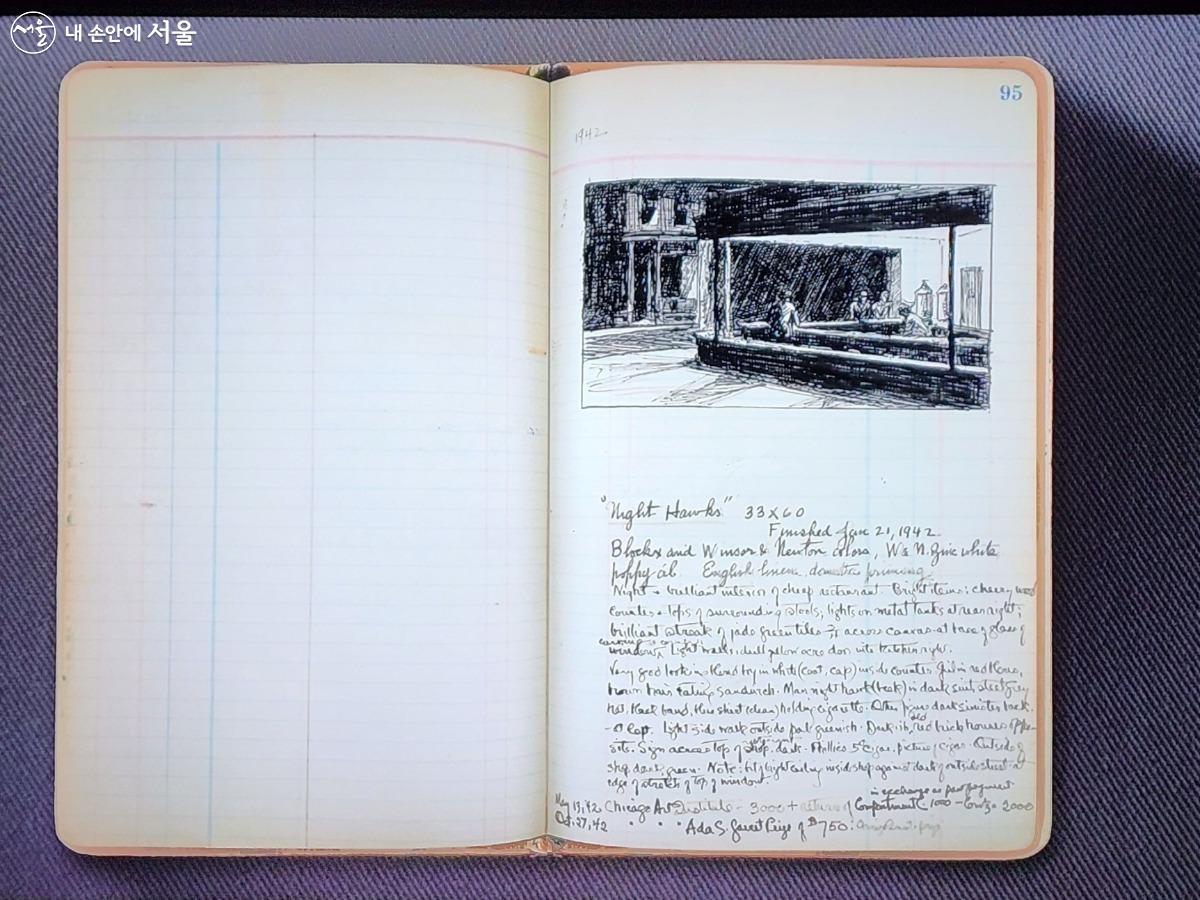 서울 내 손안에 서울
95
1942
"Night Hawks" 33 x 60
Finished Jan. 21, 1942
Blockx and Winsor & Newton colors, W & N. Zinc white
poppy oil. English linen, domestic priming
Night + brilliant interior of cheap restaurant. Bright items: cherry wood
counter + tops of surrounding stools; lights on metal tanks at rear right;
brilliant streak of jade green tiles 3/4 across canvas at base of glass of
window
Light walls, dull yellow ocre door into kitchen right.
Very good looking blond boy in white (coat, cap) inside counter. Girl in red blouse,
brown hair eating sandwich. Man night hawk (beak) in dark suit, steel grey
hat, black band, blue shirt (clean) holding cigarette. Other figure dark sinister back.
Light side walk outside pale greenish. Darkish red brick houses oppo-
site. Sign across top of shop, dark - Phillies 5¢ cigar, picture of cigar. Outside of
shop dark, green. Note: bit of bright ceiling inside shop against dark of outside street at
edge of stretch of top of window.
in exchange as part payment
May 13, 42. Chicago Art Institute - 3000 + return of Compartment C 1000 - 2000
Oct. 27, 42 " " " Ada S. Garret Prize of $750: